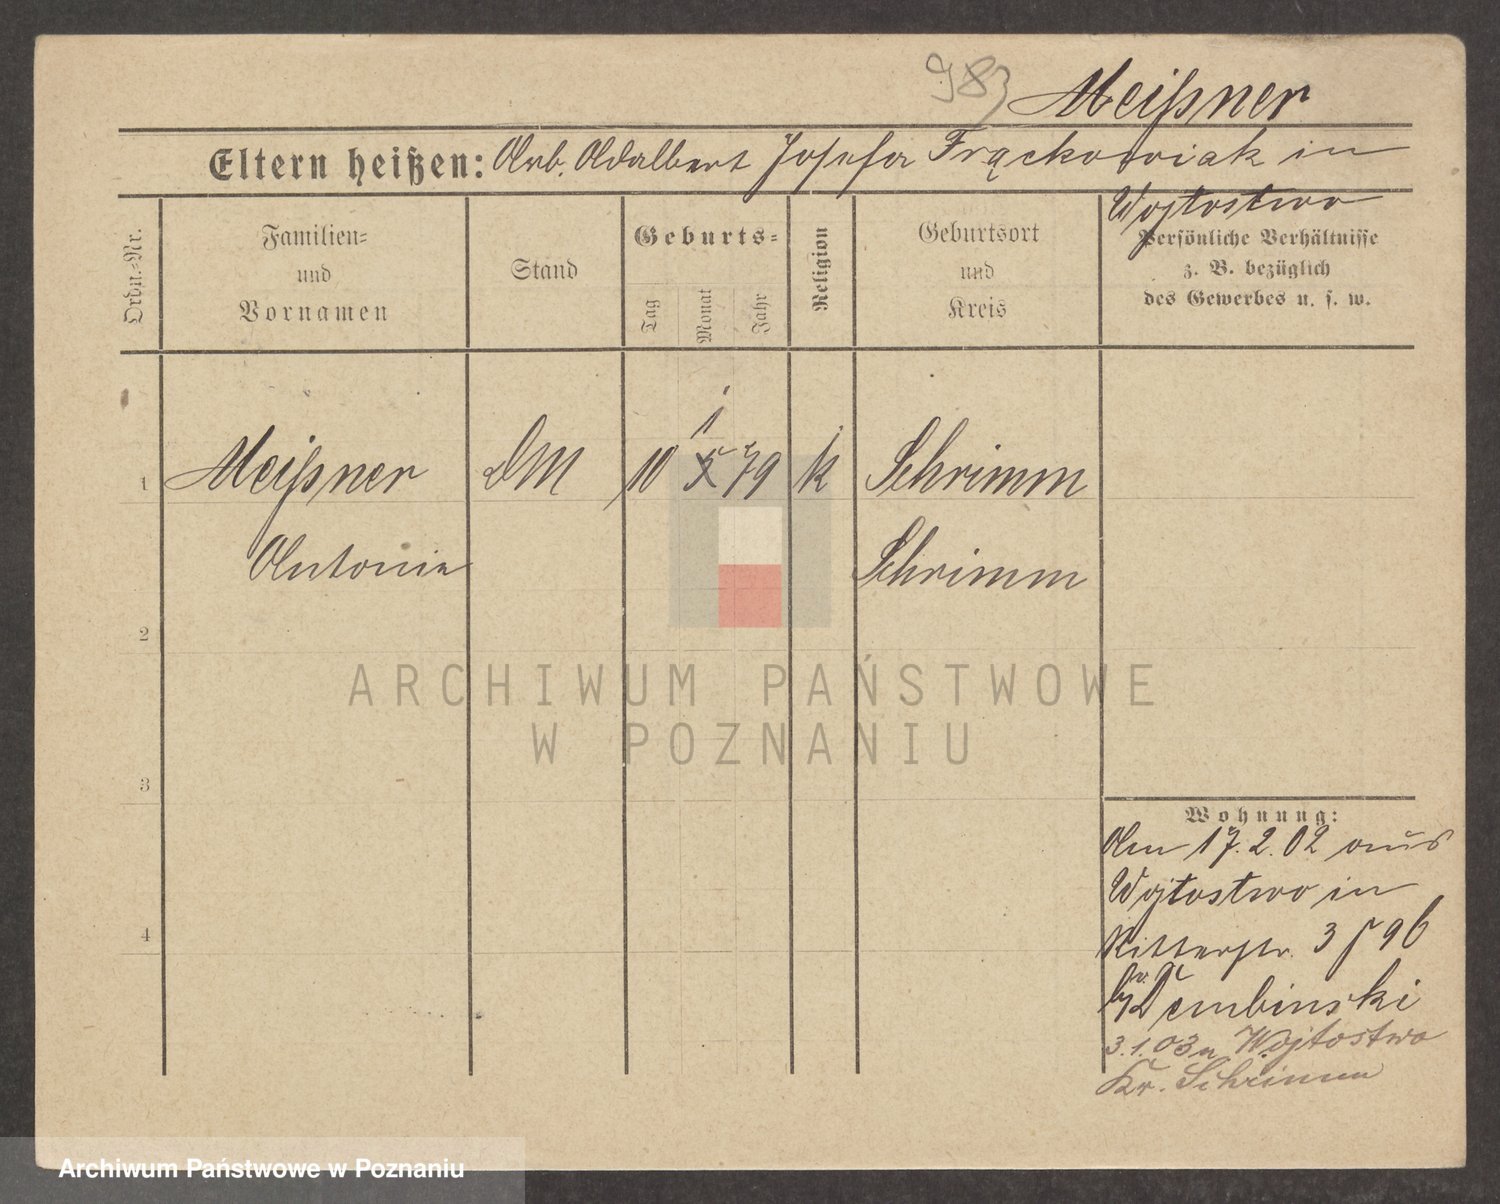 983 Meißner
Eltern heißen: Arb. Adalbert Josefa Frąckowiak in
Wojtostwo
Ordn.-Nr.
Familien-
und
Vornamen
Stand
Geburts-
Tag
Monat
Jahr
Religion
Geburtsort
und
Kreis
Persönliche Verhältnisse
z. B. bezüglich
des Gewerbes u. s. w.
1
1 Meißner DM 10 79 k Schrimm
Antonie Schrimm
2
3
4
Wohnung:
Am 17.2.02 aus
Wojtostwo in
Ritterstr. 3 96
Dembinski
3.1.03 n Wojtostwo
Kr. Schrimm
ARCHIWUM PAŃSTWOWE
W POZNANIU
Archiwum Państwowe w Poznaniu